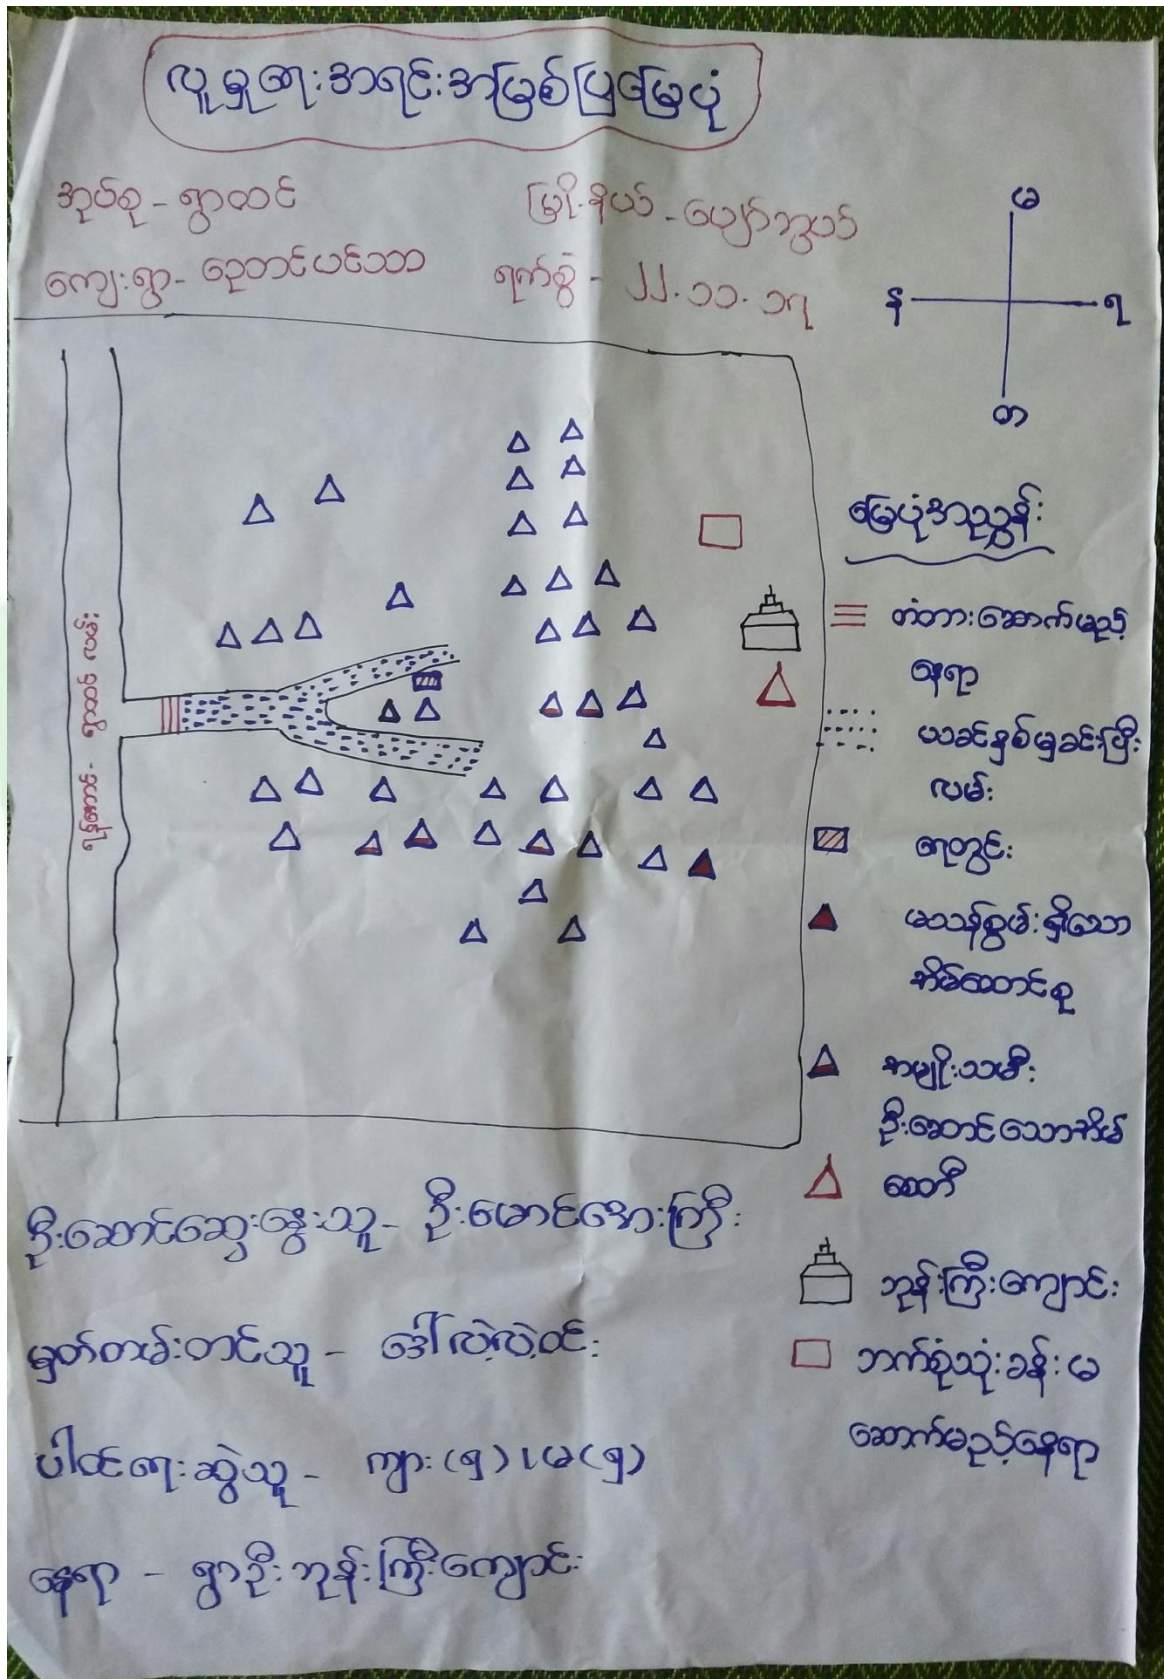 လူမှုရေးအရင်းအမြစ်ပြမြေပုံ
အုပ်စု - ရွာတင်
မြို့နယ် - ပျော်ဘွယ်
ကျေးရွာ - ညောင်ပင်သာ
ရက်စွဲ - ၂၂.၁၁.၁၇
မ
န
ရ
တ
ရွာတင် လမ်း
မြေပုံအညွှန်း
တံတားဆောက်မည့်
နေရာ
ယခင်နှစ်မှခင်းပြီး
လမ်း
ရေတွင်း
မသန်စွမ်းရှိသော
အိမ်ထောင်စု
အမျိုးသမီး
ဦးဆောင်သောအိမ်
စေတီ
ဘုန်းကြီးကျောင်း
ဘက်စုံသုံးခန်းမ
ဆောက်မည့်နေရာ
ဦးဆောင်ဆွေးနွေးသူ - ဦးမောင်အေးကြီး
မှတ်တမ်းတင်သူ - ဒေါ်လဲ့လဲ့ဝင်း
ပါဝင်ရေးဆွဲသူ - ကျား(၅)၊ မ(၅)
နေရာ - ရွာဦးဘုန်းကြီးကျောင်း